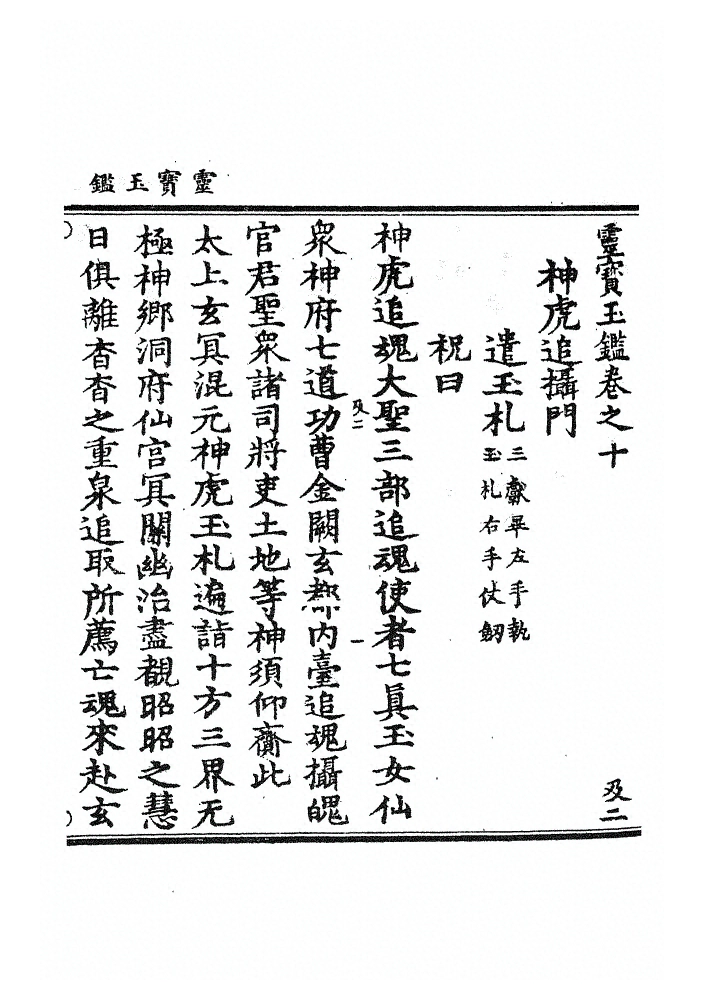 靈寶玉鑑
靈寶玉鑑卷之十
及二
神虎追攝門
遣玉札
三獻畢左手執
玉札右手仗劒
祝曰
神虎追魂大聖三部追魂使者七眞玉女仙
及二
一
衆神府七道功曹金闕玄𣙗內臺追魂攝魄
官君聖衆諸司將吏土地等神須仰齎此
太上玄冥混元神虎玉札遍詣十方三界无
極神鄉洞府仙宫冥關幽治盡覩昭昭之慧
日俱離杳杳之重泉追取所薦亡魂來赴玄